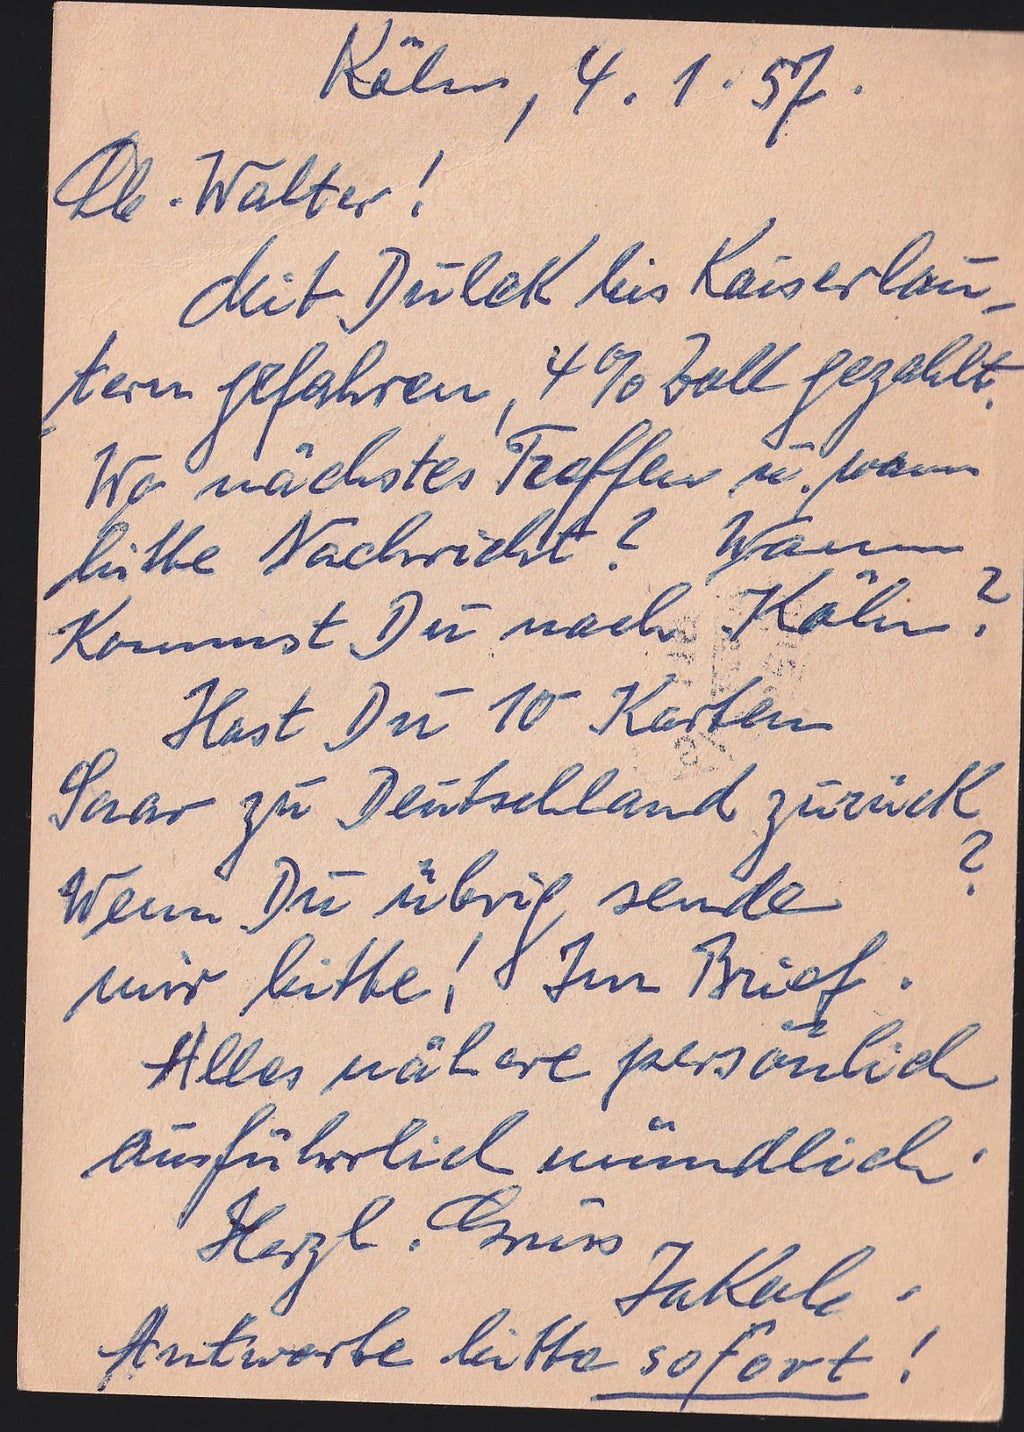 Köln, 4. 1. 57.
Lb. Walter!
Mit Dulck bis Kaiserlau-
tern gefahren, 4% Zoll gezahlt.
Wo nächstes Treffen u. wann
bitte Nachricht? Wann
Kommst Du nach Köln?
Hast Du 10 Karten
Saar zu Deutschland zurück
?
Wenn Du übrig sende
mir bitte! Im Brief.
Alles nähere persönlich
ausführlich mündlich.
Herzl. Gruss
Jakob.
Antworte bitte sofort!